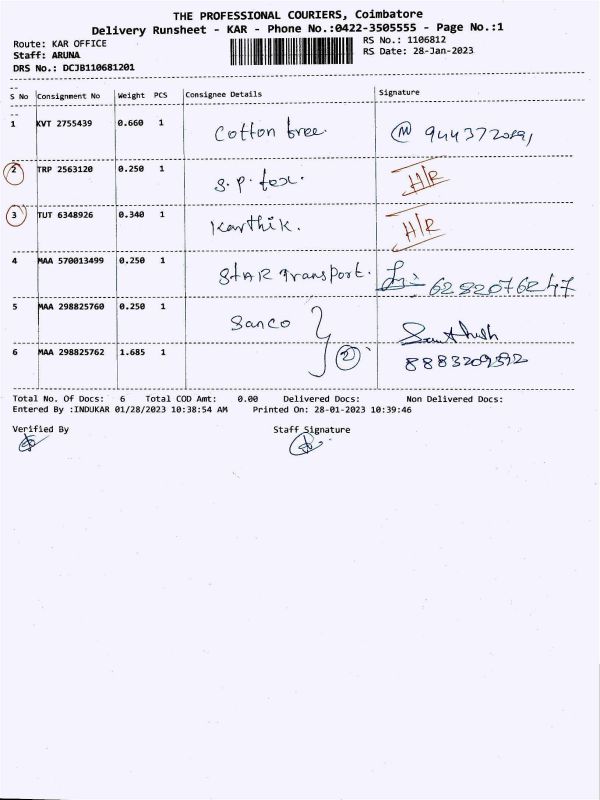 THE PROFESSIONAL COURIERS, Coimbatore
Delivery Runsheet - KAR - Phone No.:0422-3505555 - Page No.:1
Route: KAR OFFICE
RS No.: 1106812
Staff: ARUNA
RS Date: 28-Jan-2023
DRS No.: DCJB110681201
S No Consignment No Weight PCS Consignee Details Signature
1 KVT 2755439 0.660 1 Cotton tree.
2 TRP 2563120 0.250 1 S.P. tex. H/R
3 TUT 6348926 0.340 1 Karthik. H/R
4 MAA 570013499 0.250 1 StAR Transport. 6282076247
5 MAA 298825760 0.250 1 Sanco Santhosh
6 MAA 298825762 1.685 1 2 8883209592
Total No. Of Docs: 6 Total COD Amt: 0.00 Delivered Docs: Non Delivered Docs:
Entered By :INDUKAR 01/28/2023 10:38:54 AM Printed On: 28-01-2023 10:39:46
Verified By Staff Signature